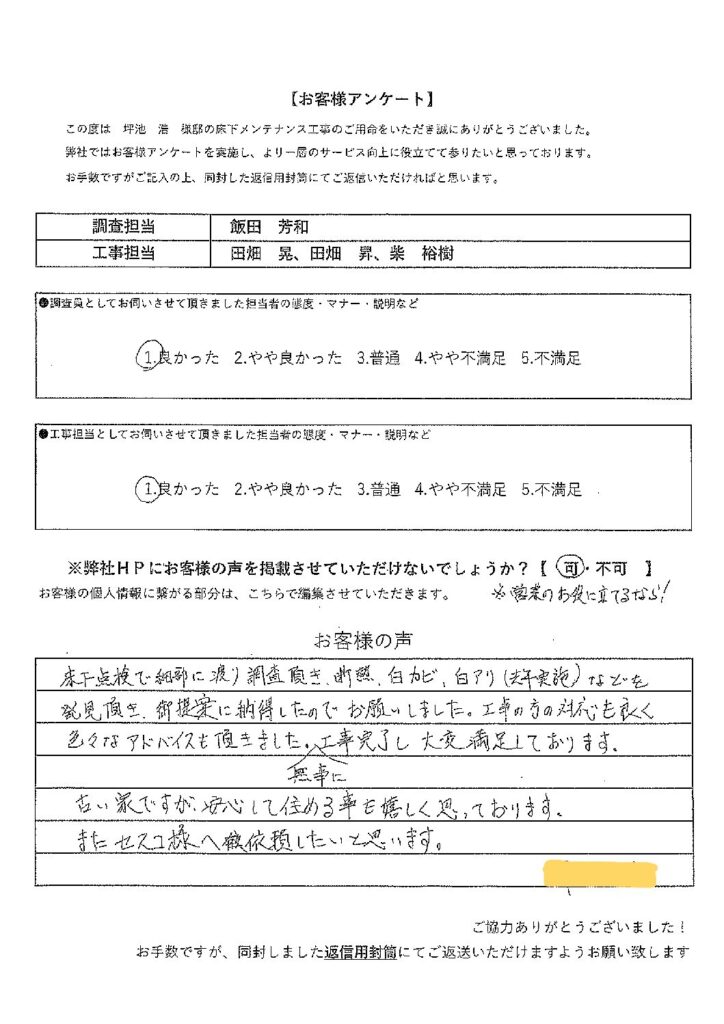 【お客様アンケート】
この度は 坪池 浩 様邸の床下メンテナンス工事のご用命をいただき誠にありがとうございました。
弊社ではお客様アンケートを実施し、より一層のサービス向上に役立てて参りたいと思っております。
お手数ですがご記入の上、同封した返信用封筒にてご返信いただければと思います。
調査担当 飯田 芳和
工事担当 田畑 晃、田畑 昇、柴 裕樹
●調査員としてお伺いさせて頂きました担当者の態度・マナー・説明など
1.良かった 2.やや良かった 3.普通 4.やや不満足 5.不満足
●工事担当としてお伺いさせて頂きました担当者の態度・マナー・説明など
1.良かった 2.やや良かった 3.普通 4.やや不満足 5.不満足
※弊社HPにお客様の声を掲載させていただけないでしょうか?【 可・不可 】
お客様の個人情報に繋がる部分は、こちらで編集させていただきます。 ※営業のお役に立てるなら!
お客様の声
床下点検で細部に渡り調査頂き、断熱、白カビ、白アリ(去年実施)などを
発見頂き、御提案に納得したのでお願いしました。工事の方の対応も良く
色々なアドバイスも頂きました。工事完了し 大変満足しております。
無事に
古い家ですが、安心して住める事も嬉しく思っております。
またセスコ様へ御依頼したいと思います。
ご協力ありがとうございました!
お手数ですが、同封しました返信用封筒にてご返送いただけますようお願い致します